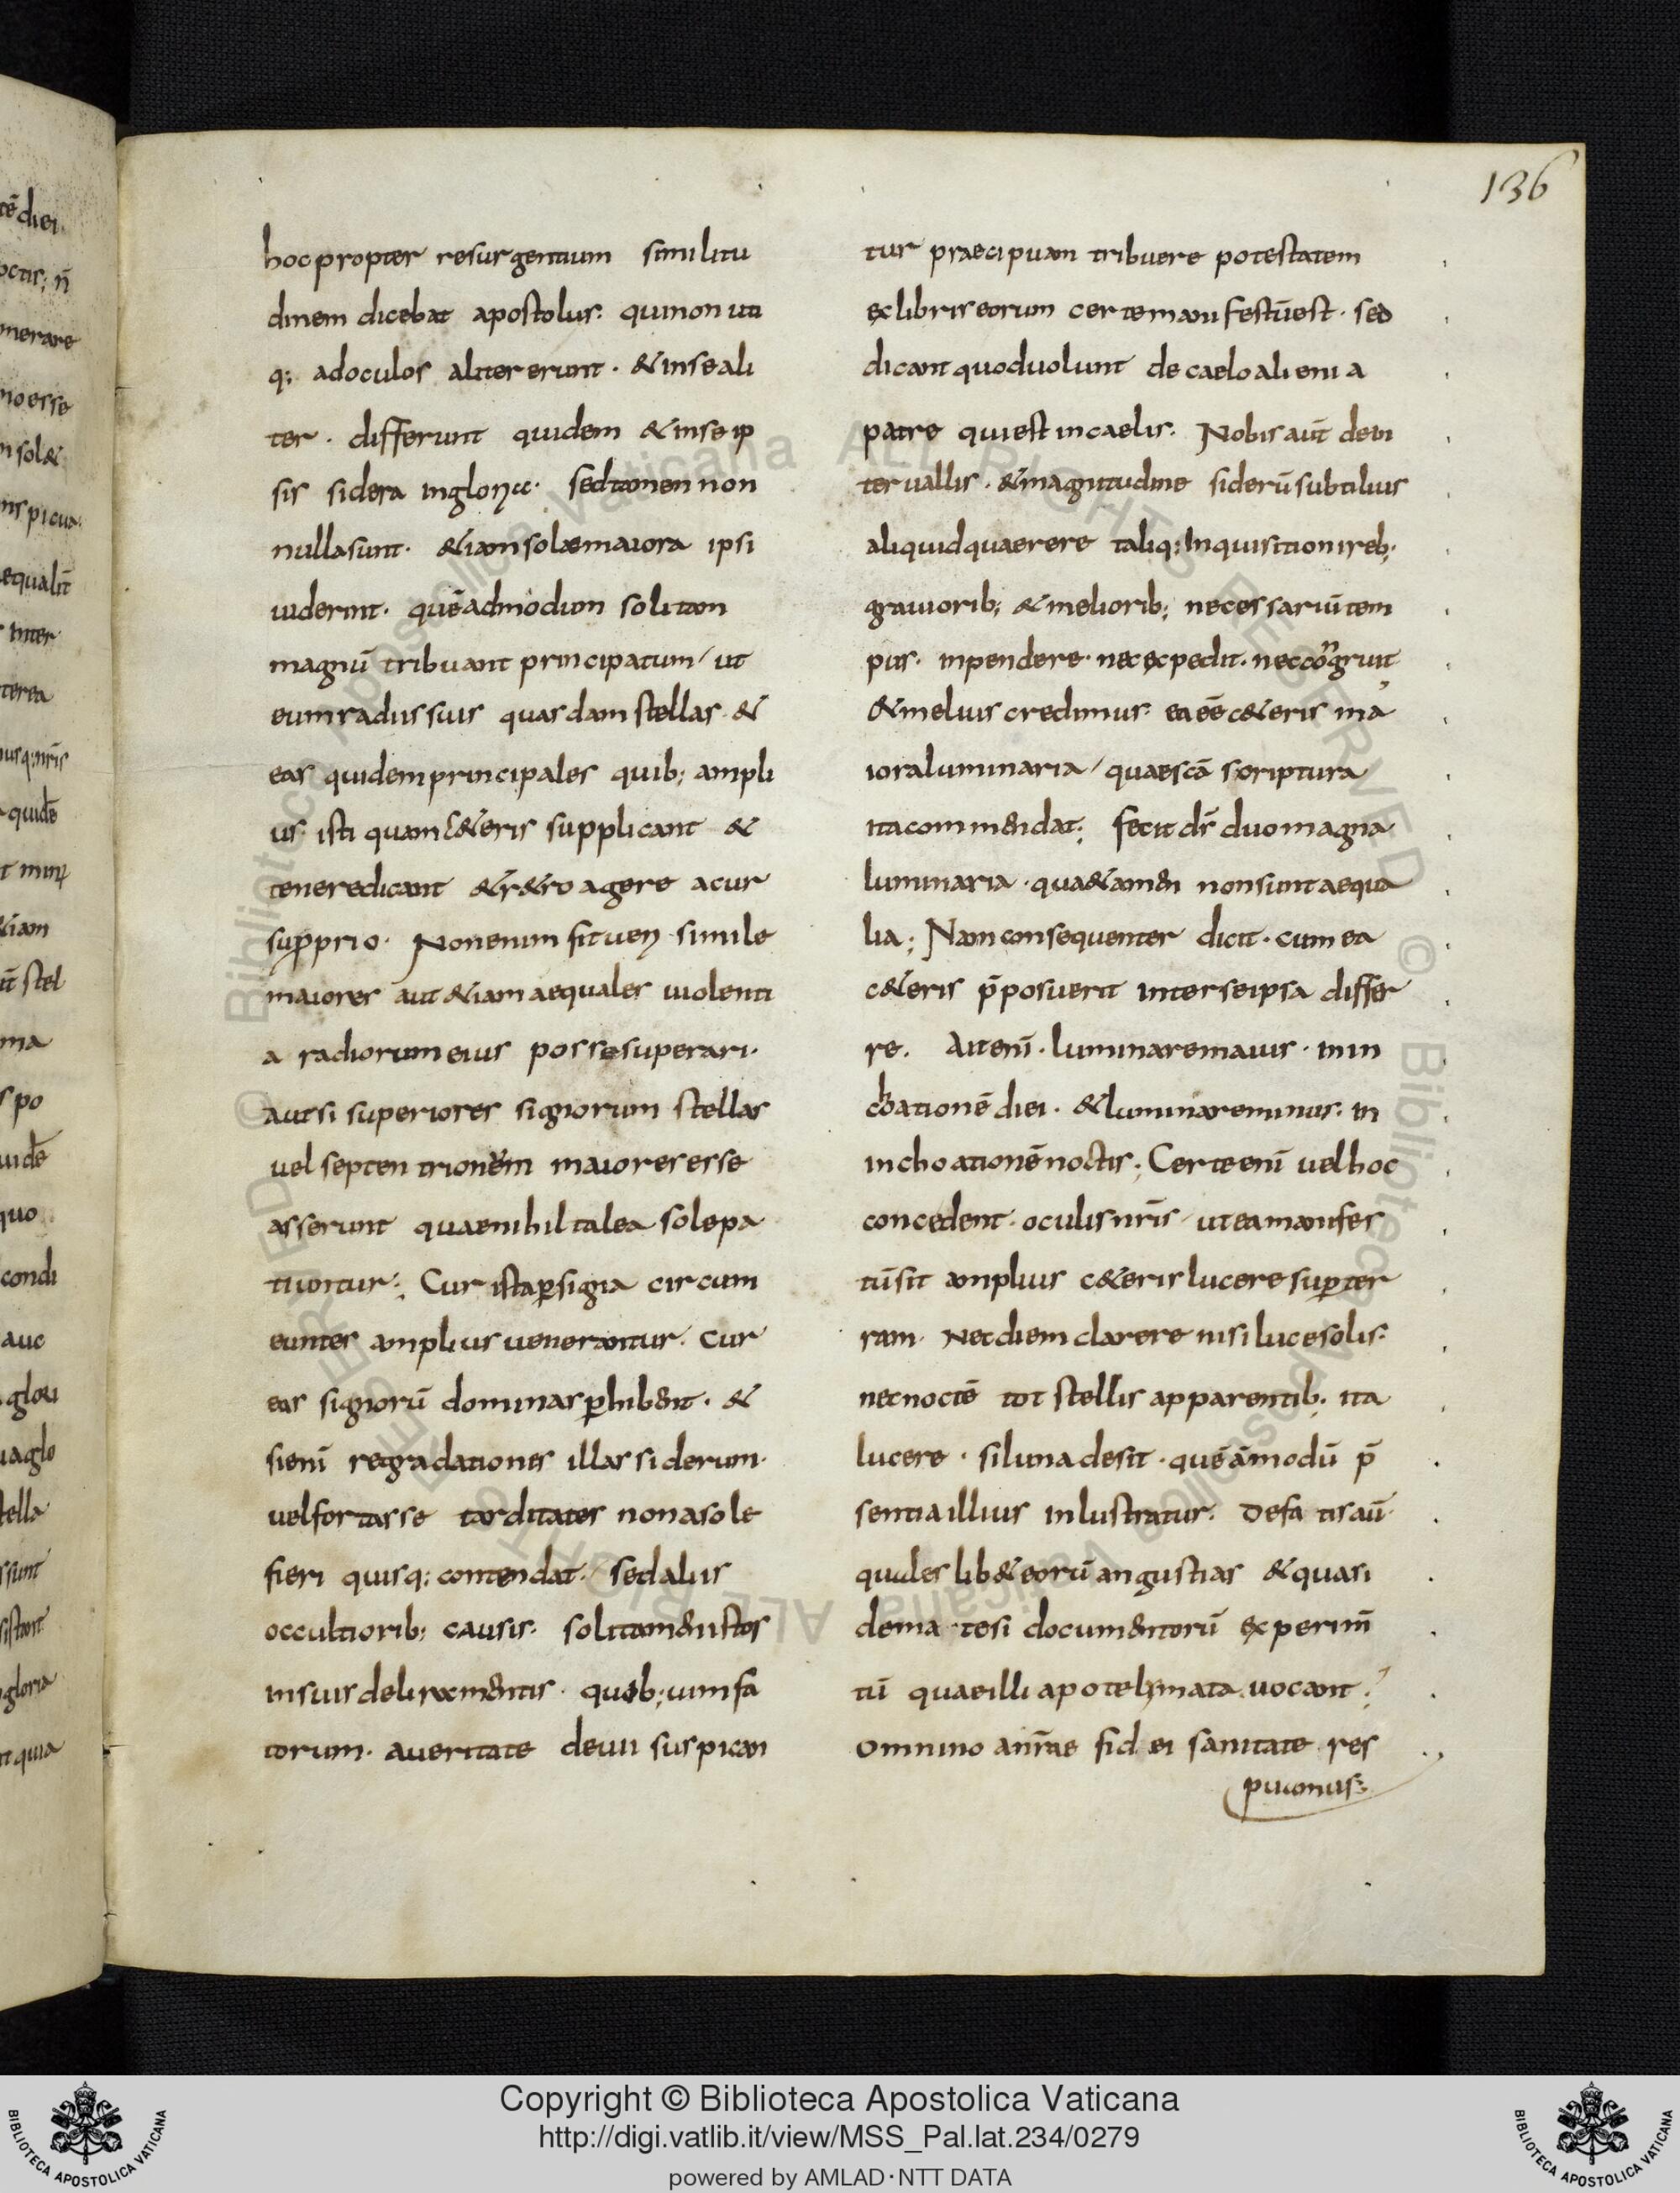 136
hocpropter resurgentium similitu
dinem dicebat apostolus. quinon uti
q; adoculos aliter erunt. & inseali
ter. differunt quidem & inse ip
sis sidera ingloria. sedtamen non
nullasunt. &iamsolemaiora ipsi
uiderint. quēadmodum solitam
magnū tribuant principatum/ ut
eumradiis suis quasdam stellas &
eas quidem principales quib; ampli
us isti quam c&eris supplicant &
teneredicant &r&ro agere a cur
su proprio. Nonenim fit ueri simile
maiores aut &iam aequales uiolenti
a radiorum eius posse superari.
autsi superiores signorum stellas
uel septen trionem maiores esse
asserunt quaenihil talea sole pa
tiuntur; Cur ista per signa circum
euntes amplius uenerantur. Cur
eas signorū dominas perhibent. &
sienī regradationes illas siderum.
uelfortasse tarditates nonasole
fieri quisq; contendat./ sedaliis
occultiorib; causis. solitamenistos
insuis deliramentis. quib; uimfa
torum. aueritate deuii suspican
tur praecipuam tribuere potestatem
exlibris eorum certemanifestūest. sed
dicant quoduolunt de caelo alieni a
patre quiest incaelis. Nobis aūt dein
teruallis. &magnitudine siderūsubtilius
aliquidquaerere taliq; Inquisitioni reb;
grauiorib; &meliorib; necessariūtem
pus. inpendere. necexpedit. neccongruit
&melius credimus. ea eē c&eris ma
ioraluminaria/ quaescā scriptura
itacommendat; fecit dr̄ duomagna
luminaria. quae&amen nonsunt aequa
lia; Nam consequenter dicit. cum ea
c&eris p̄posuerit interseipsa differ
re. Aitenī. luminaremaius. inin
choationē diei. &luminareminus. in
inchoationē noctis; Certeenī uelhoc
concedent. oculis nr̄is/ uteamanifes
tūsit amplius c&eris lucere super ter
ram. Necdiem clarere nisi lucesolis.
necnoctē tot stellis apparentib; ita
lucere. siluna desit. quēāmodū p̄
sentiaillius inlustratur. Defa tisaū
quales lib& eorū angustias & quasi
dema tesi documentorū experim̄
tū quaeilli apotelysmata uocant;
omnino anīmae fid ei sanitate res
puamus;
Copyright © Biblioteca Apostolica Vaticana
http://digi.vatlib.it/view/MSS_Pal.lat.234/0279
powered by AMLAD·NTT DATA
BIBLIOTECA APOSTOLICA VATICANA
BIBLIOTECA APOSTOLICA VATICANA